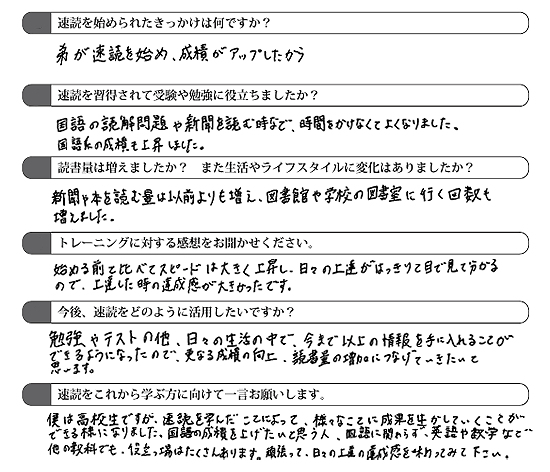 速読を始められたきっかけは何ですか？
弟が速読を始め、成績がアップしたから
速読を習得されて受験や勉強に役立ちましたか？
国語の読解問題や新聞を読む時などで、時間をかけなくてよくなりました。
国語系の成績も上昇しました。
読書量は増えましたか？　また生活やライフスタイルに変化はありましたか？
新聞や本を読む量は以前よりも増え、図書館や学校の図書室に行く回数も
増えました。
トレーニングに対する感想をお聞かせください。
始める前と比べてスピードは大きく上昇し、日々の上達がはっきりと目で見て分かる
ので、上達した時の達成感が大きかったです。
今後、速読をどのように活用したいですか？
勉強やテストの他、日々の生活の中で、今まで以上の情報を手に入れることが
できるようになったので、更なる成績の向上、読書量の増加につなげていきたいと
思います。
速読をこれから学ぶ方に向けて一言お願いします。
僕は高校生ですが、速読を学んだことによって、様々なことに成果を生かしていくことが
できる様になりました。国語の成績を上げたいと思う人、国語に関わらず、英語や数学など
他の教科でも、役立つ場はたくさんあります。頑張って、日々の上達の達成感を味わってみて下さい。